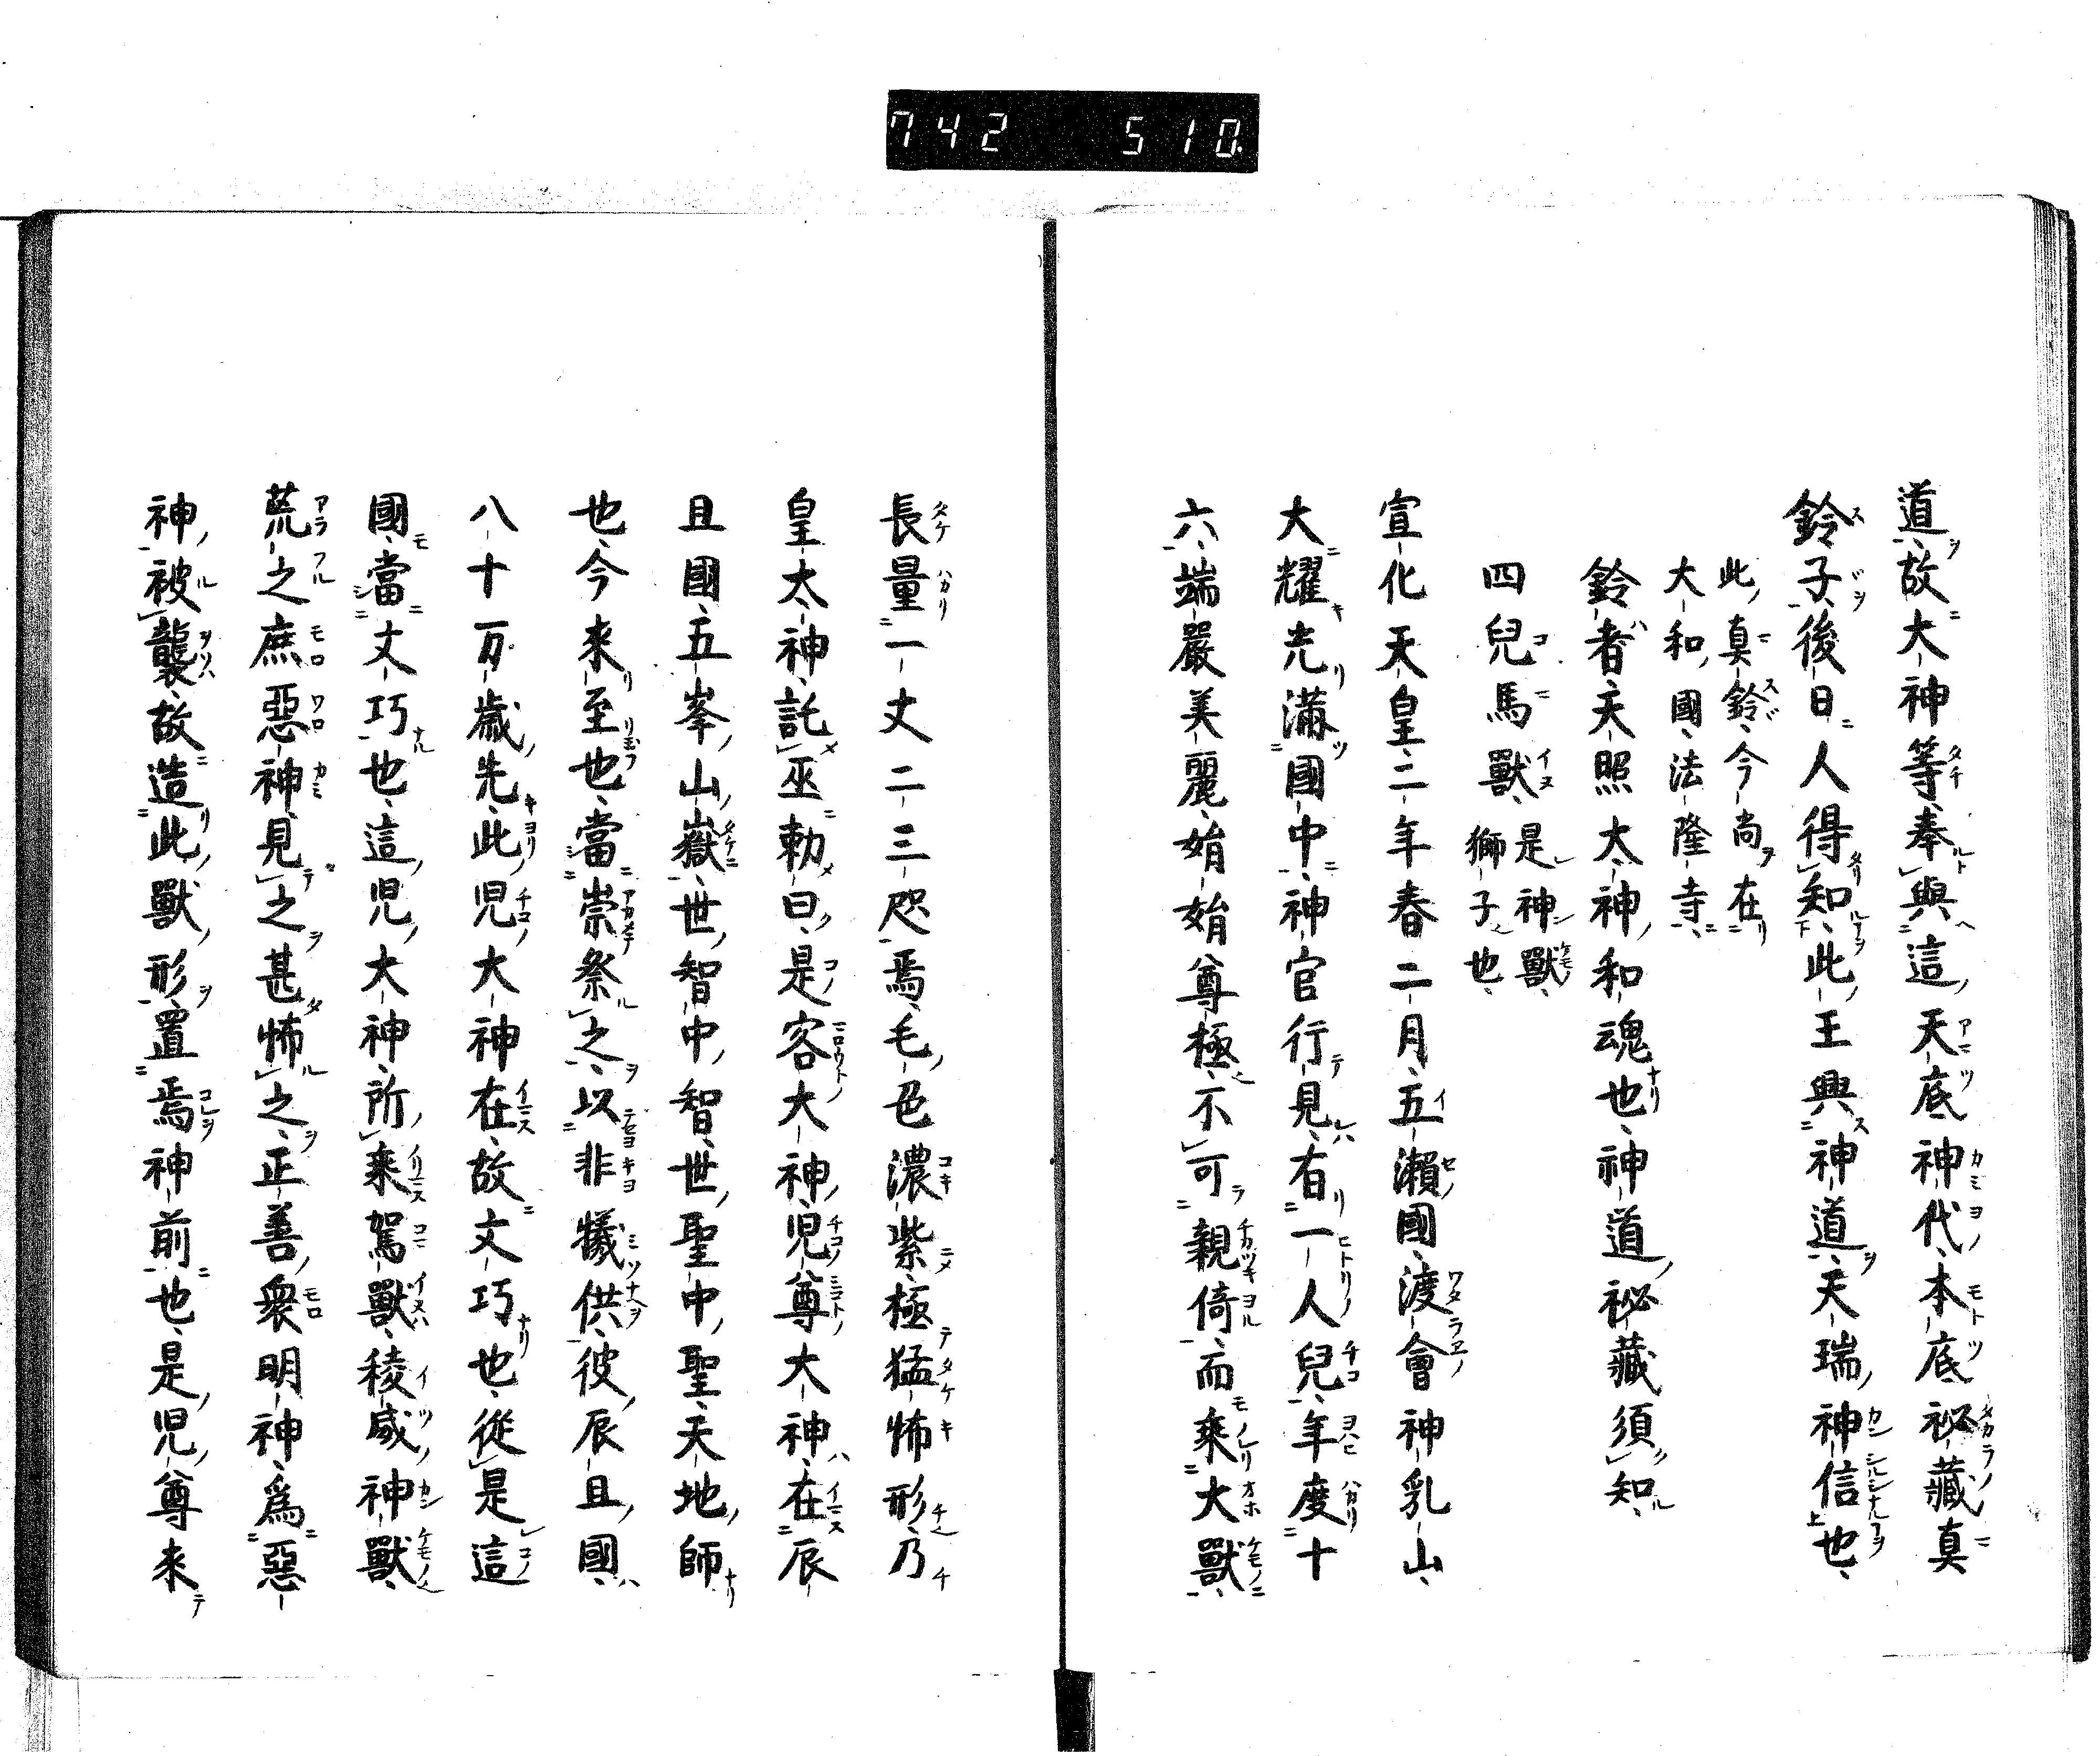 742 510
道故大神等奉與這天底神代本底祕藏真
鈴子後日人得知此王興神道天瑞神信也
此真鈴今尚在
大和國法隆寺
鈴者天照大神和魂也神道祕藏須知
四兒馬獸
是神獸
獅子也
宣化天皇二年春二月五瀨國渡會神乳山
大耀光滿國中神官行見有一人兒年度十
六端嚴美麗始始尊極不可親倚而乘大獸
長量一丈二三咫焉毛色濃紫極猛怖形乃
皇太神託巫勅曰是客大神児尊大神在辰
且國五峯山嶽世智中智世聖中聖天地師
也今來至也當崇祭之以非犧供彼辰且國
八十万歲先此児大神在故文巧也從是這
國當文巧也這児大神所乘駕獸稜威神獸
荒之庶惡神見之甚怖之正善衆明神為惡
神被襲故造此獸形置焉神前也是児尊来